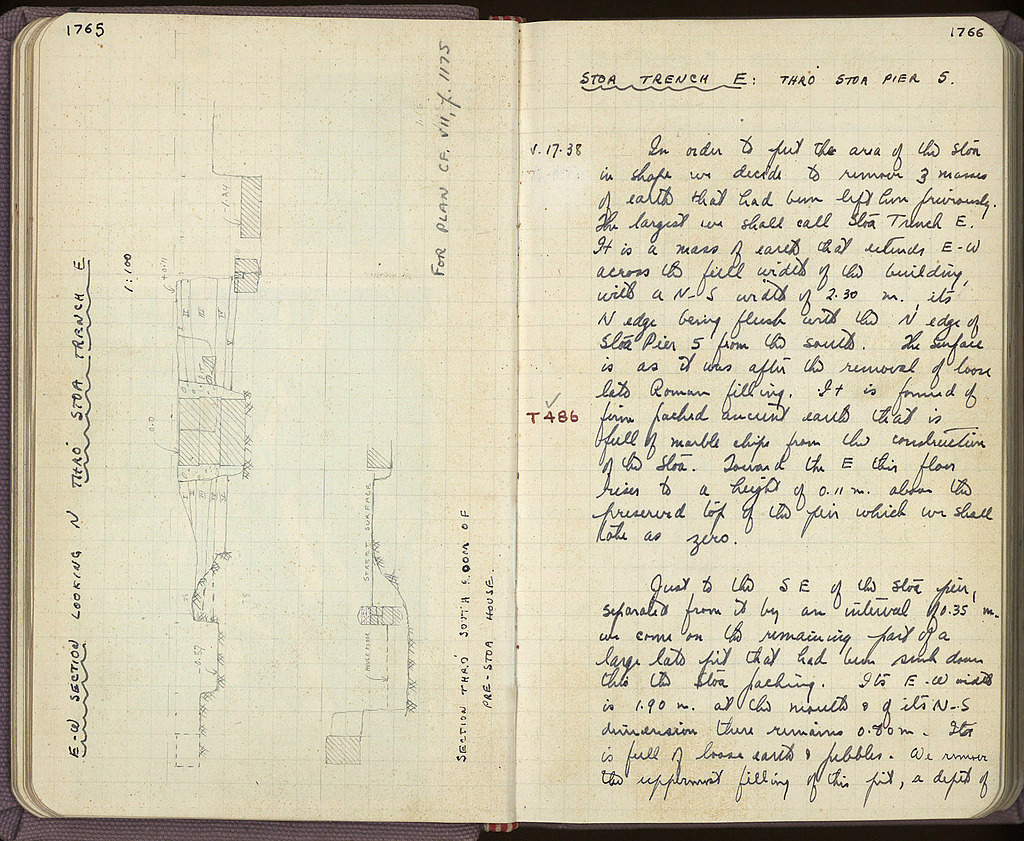 1765
E-W SECTION LOOKING N THRO' STOA TRENCH E
1:100
FOR PLAN CF. VII, p. 1175
+0.11
1.24
0.0
-0.57
I II III IV V
I II III IV
STREET SURFACE
SECTION THRO' SOUTH ROOM OF
PRE-STOA HOUSE.
1766
STOA TRENCH E: THRO' STOA PIER 5.
V. 17-38
In order to put the area of the Stoa
in shape we decide to remove 3 masses
of earth that had been left here previously.
The largest we shall call Stoa Trench E.
It is a mass of earth that extends E-W
across the full width of the building,
with a N-S width of 2.30 m., its
N edge being flush with the N edge of
Stoa Pier 5 from the south. The surface
is as it was after the removal of loose
late Roman filling. It is formed of
T 486
firm packed ancient earth that is
full of marble chips from the construction
of the Stoa. Toward the E this floor
rises to a height of 0.11 m. above the
preserved top of the pier which we shall
take as zero.
Just to the SE of the Stoa pier,
separated from it by an interval of 0.35 m.
we come on the remaining part of a
large late pit that had been sunk down
thro the Stoa packing. Its E-W width
is 1.90 m. at the mouth & of its N-S
dimension there remains 0.80 m. It
is full of loose earth & pebbles. We remove
the uppermost filling of this pit, a depth of